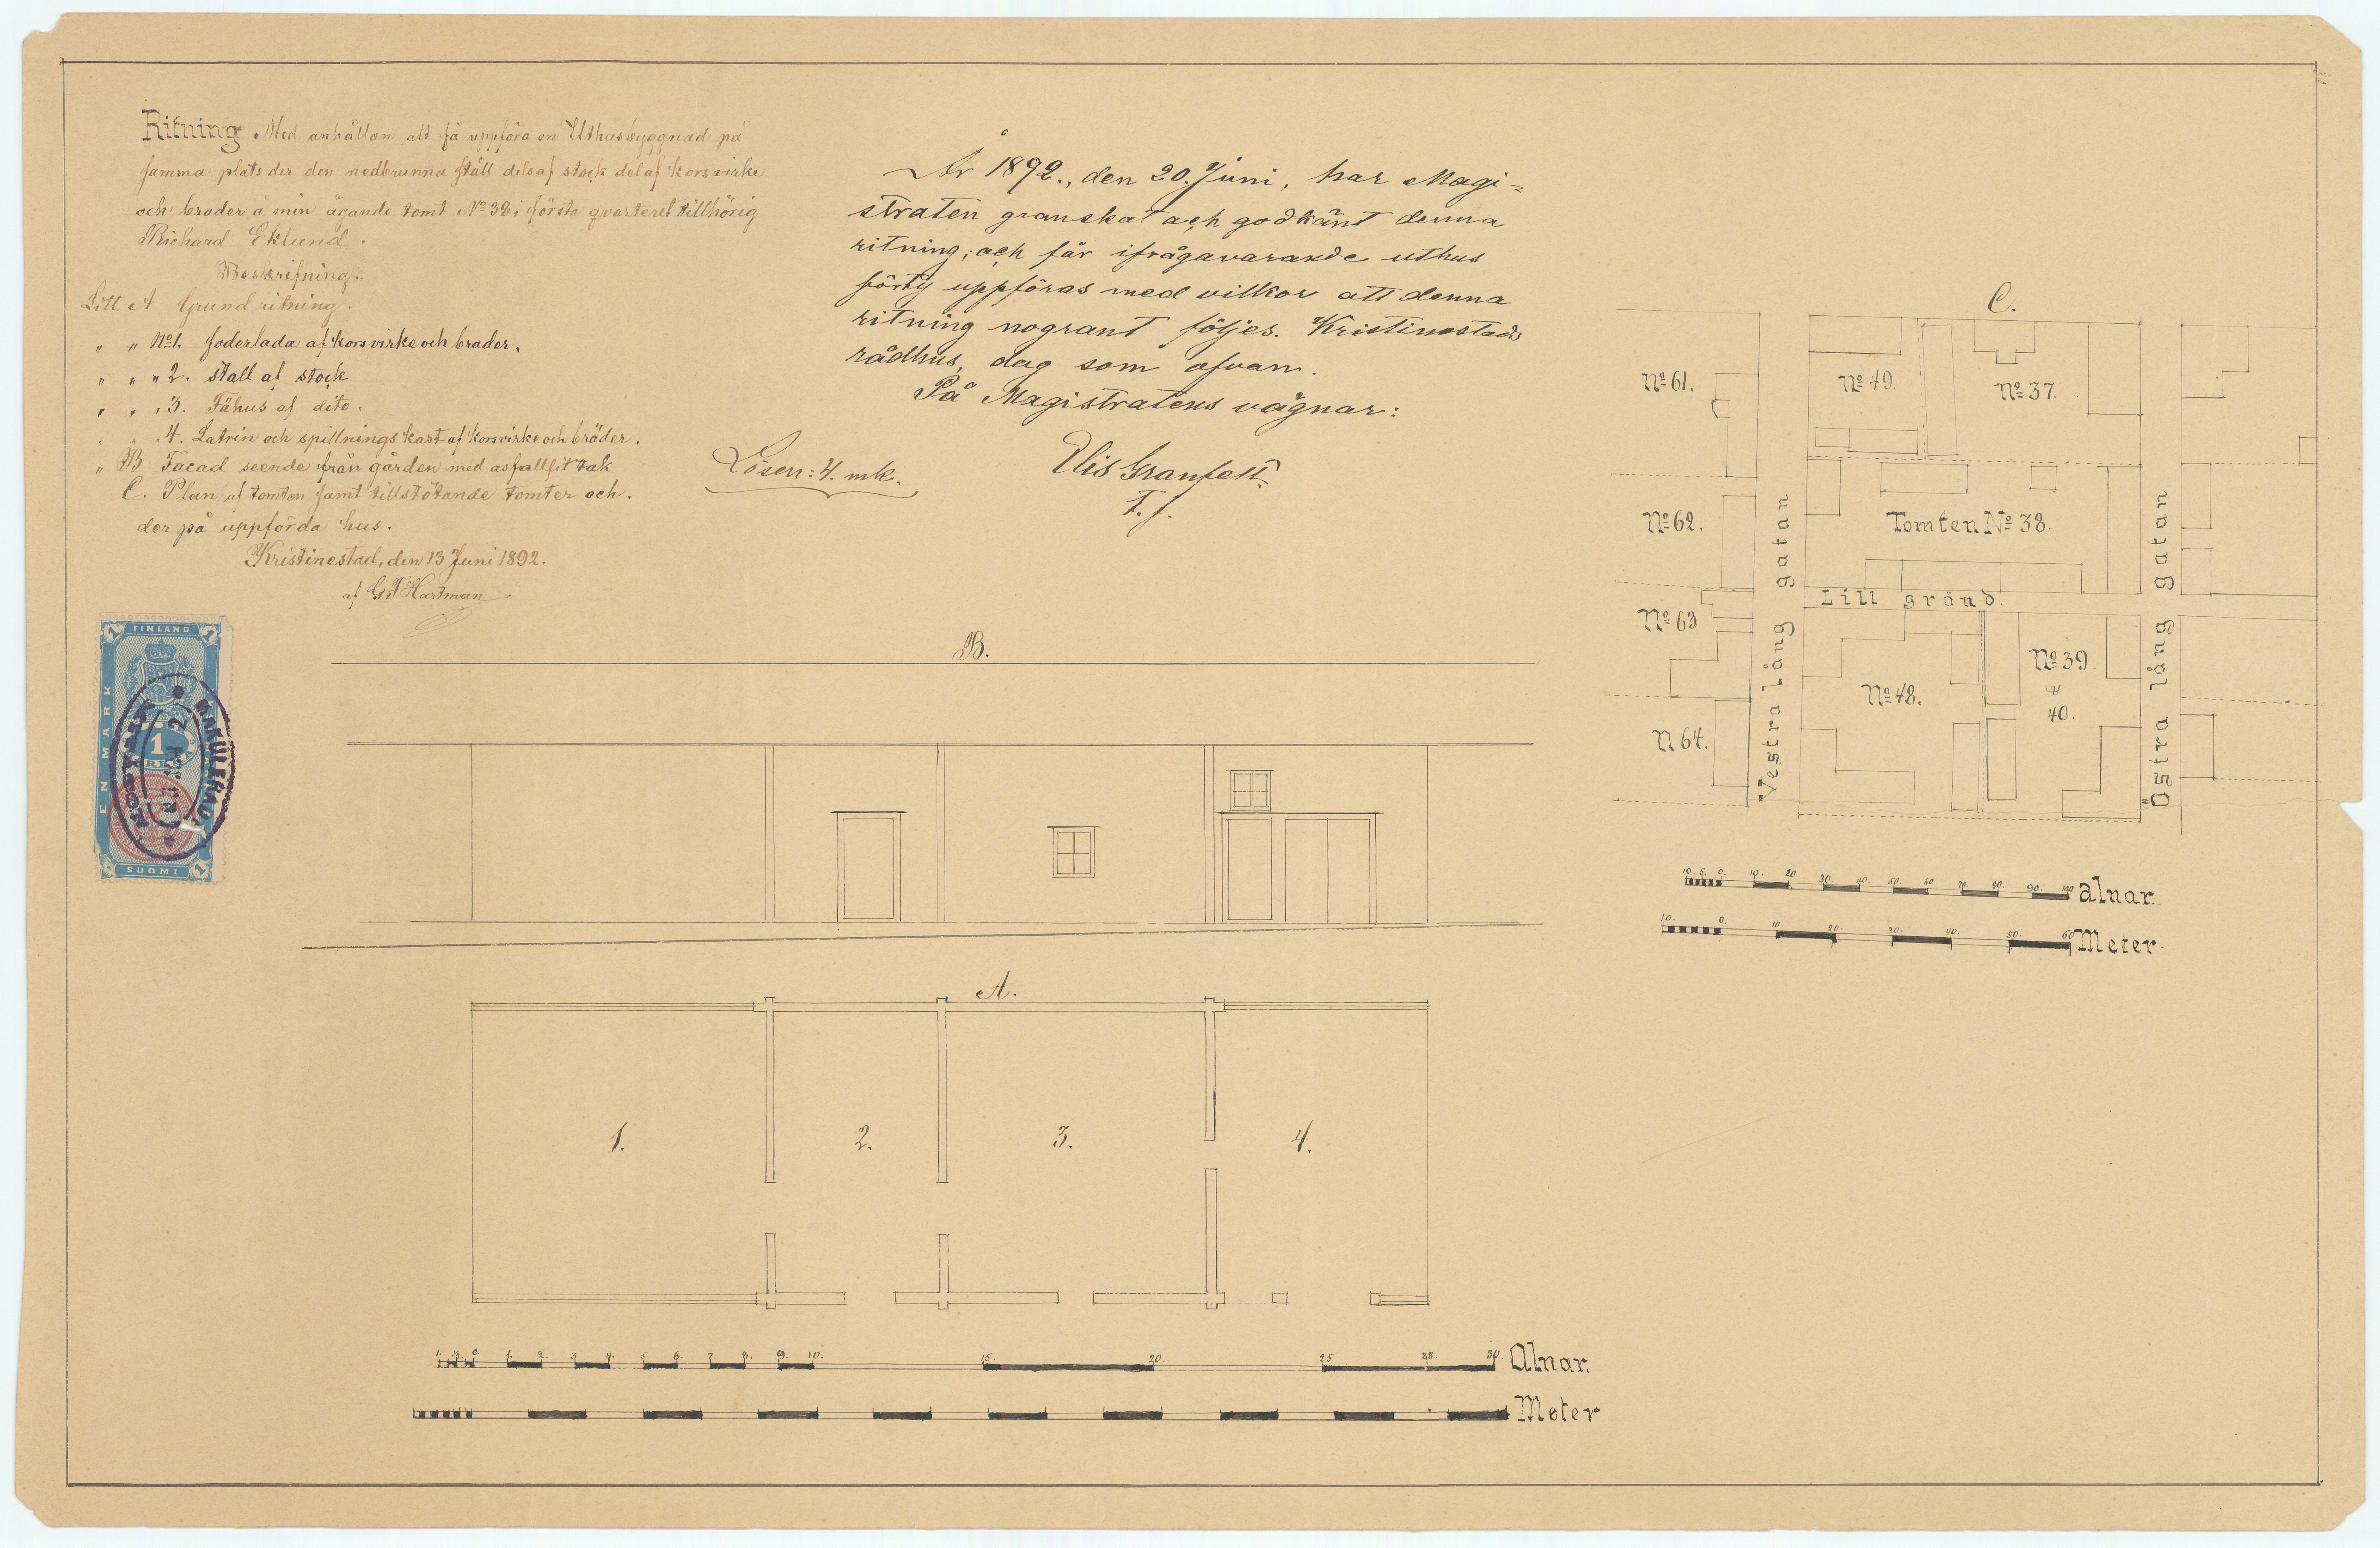 Ritning Med anhållan att få uppföra en Uthusbyggnad på
samma plats der den nedbrunna ställ dels af stock del af korsvirke
och brader å min ägande tomt No 38 i första qvarteret tillhörig
Richard Eklund.
Beskrifning.
Litt A Grund ritning.
" " No 1. foderlada af korsvirke och brader.
" " " 2. Stall af stock
" " " 3. Fähus af dito.
" " " 4. Latrin och spillnings kast af korsvirke och bräder.
" B Facad seende från gården med asfaltfilt tak
C. Plan af tomten samt tillstötande tomter och
der på uppförda hus.
Kristinestad, den 13 Juni 1892.
af G J Hartman
År 1892, den 20. Juni, har Magi=
straten granskat och godkänt denna
ritning; och får ifrågavarande uthus
förty uppföras med vilkor att denna
ritning nogrant följes. Kristinestads
rådhus, dag som ofvan.
På Magistratens vägnar:
Elis Granfelt
T. f.
Lösen: 4. mk.
FINLAND
EN MARK
1
SUOMI
B.
A.
1.
2.
3.
4.
0. 1. 2. 3. 4. 5. 6. 7. 8. 9. 10. 15. 20. 25 28. 30 Alnar.
Meter
C.
No 61.
No 49.
No 37.
No 62.
Tomten No 38.
Lill gränd.
No 63
No 39
40.
No 48.
N 64.
Vestra lång gatan
Östra lång gatan
10. 5. 0. 10. 20 30. 40. 50. 60 70. 80. 90. 100 alnar.
10. 0. 10 20. 30. 40. 50. 60 Meter.